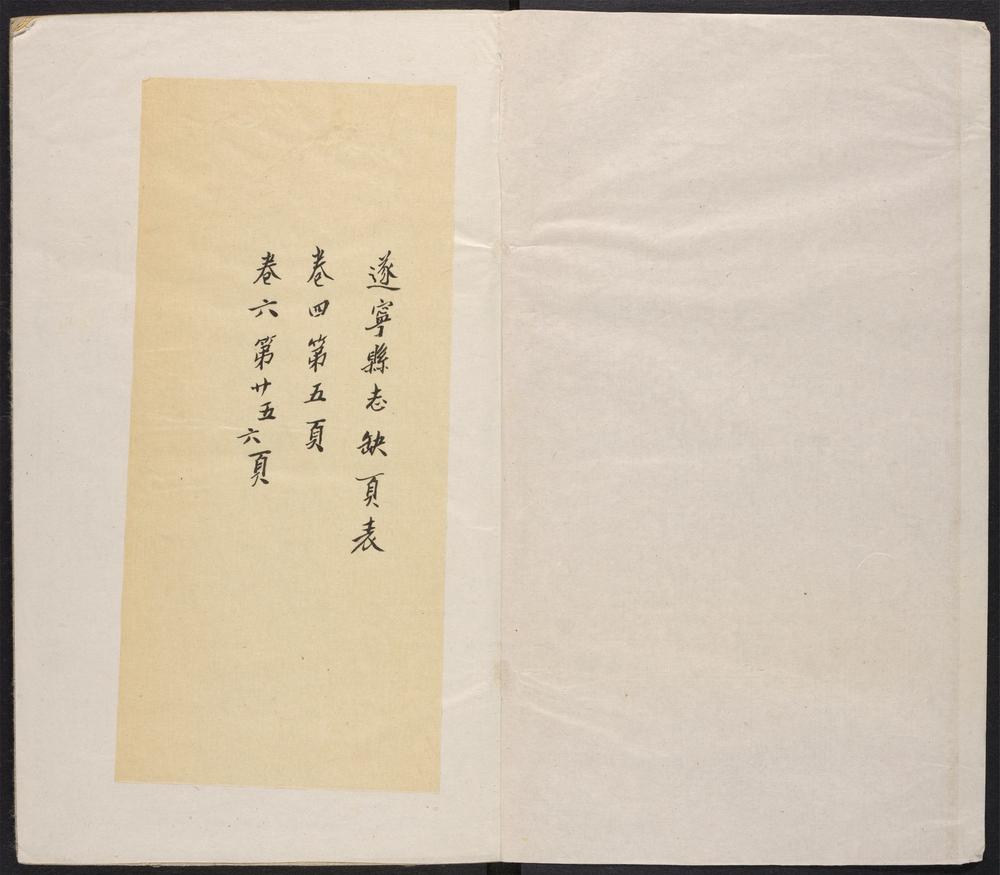 遂寧縣志缺頁表
卷四第五頁
卷六第廿五六頁